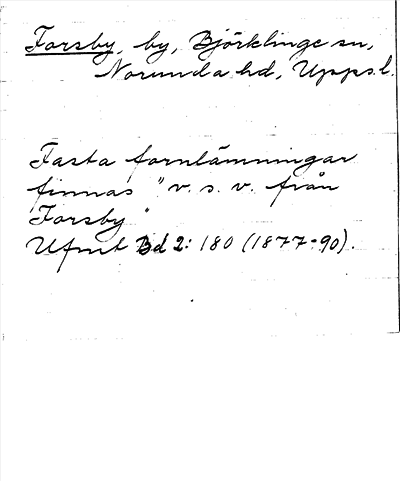 Forsby, by, Björklinge sn,
Norunda hd, Upps. l.
Fasta fornlämningar
finnas "v. s. v. från
Forsby"
Ufmt Bd 2: 180 (1877-90).